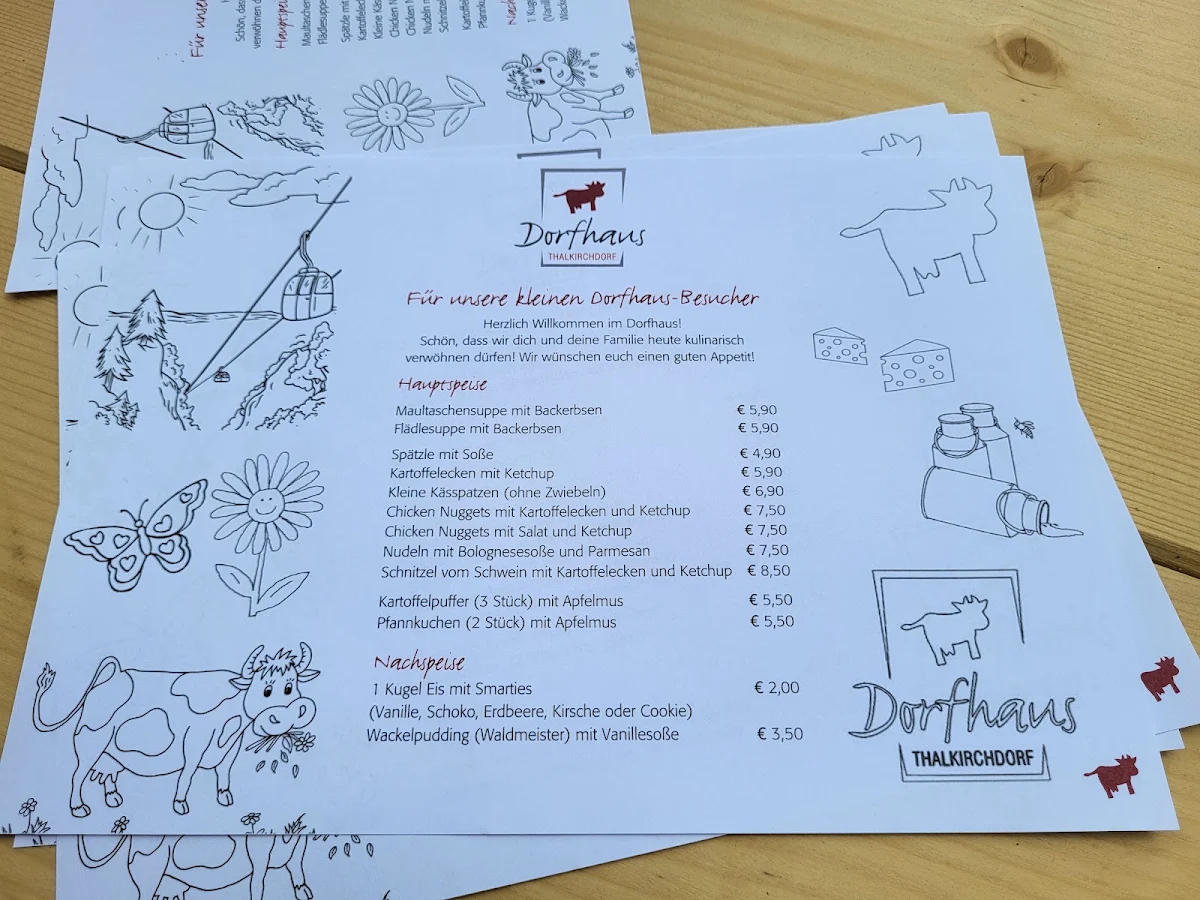 Für unsere
Schön, das
verwöhnen d
Hauptspeise
Maultaschen
Flädlesuppe
Spätzle mit
Kartoffeleck
Kleine Käs
Chicken N
Chicken N
Nudeln m
Schnitzel
Kartoffel
Pfannku
Nach
1 Kugel
(Vanill
Wack
Dorfhaus
THALKIRCHDORF
Für unsere kleinen Dorfhaus-Besucher
Herzlich Willkommen im Dorfhaus!
Schön, dass wir dich und deine Familie heute kulinarisch
verwöhnen dürfen! Wir wünschen euch einen guten Appetit!
Hauptspeise
Maultaschensuppe mit Backerbsen € 5,90
Flädlesuppe mit Backerbsen € 5,90
Spätzle mit Soße € 4,90
Kartoffelecken mit Ketchup € 5,90
Kleine Kässpatzen (ohne Zwiebeln) € 6,90
Chicken Nuggets mit Kartoffelecken und Ketchup € 7,50
Chicken Nuggets mit Salat und Ketchup € 7,50
Nudeln mit Bolognesesoße und Parmesan € 7,50
Schnitzel vom Schwein mit Kartoffelecken und Ketchup € 8,50
Kartoffelpuffer (3 Stück) mit Apfelmus € 5,50
Pfannkuchen (2 Stück) mit Apfelmus € 5,50
Nachspeise
1 Kugel Eis mit Smarties € 2,00
(Vanille, Schoko, Erdbeere, Kirsche oder Cookie)
Wackelpudding (Waldmeister) mit Vanillesoße € 3,50
Dorfhaus
THALKIRCHDORF